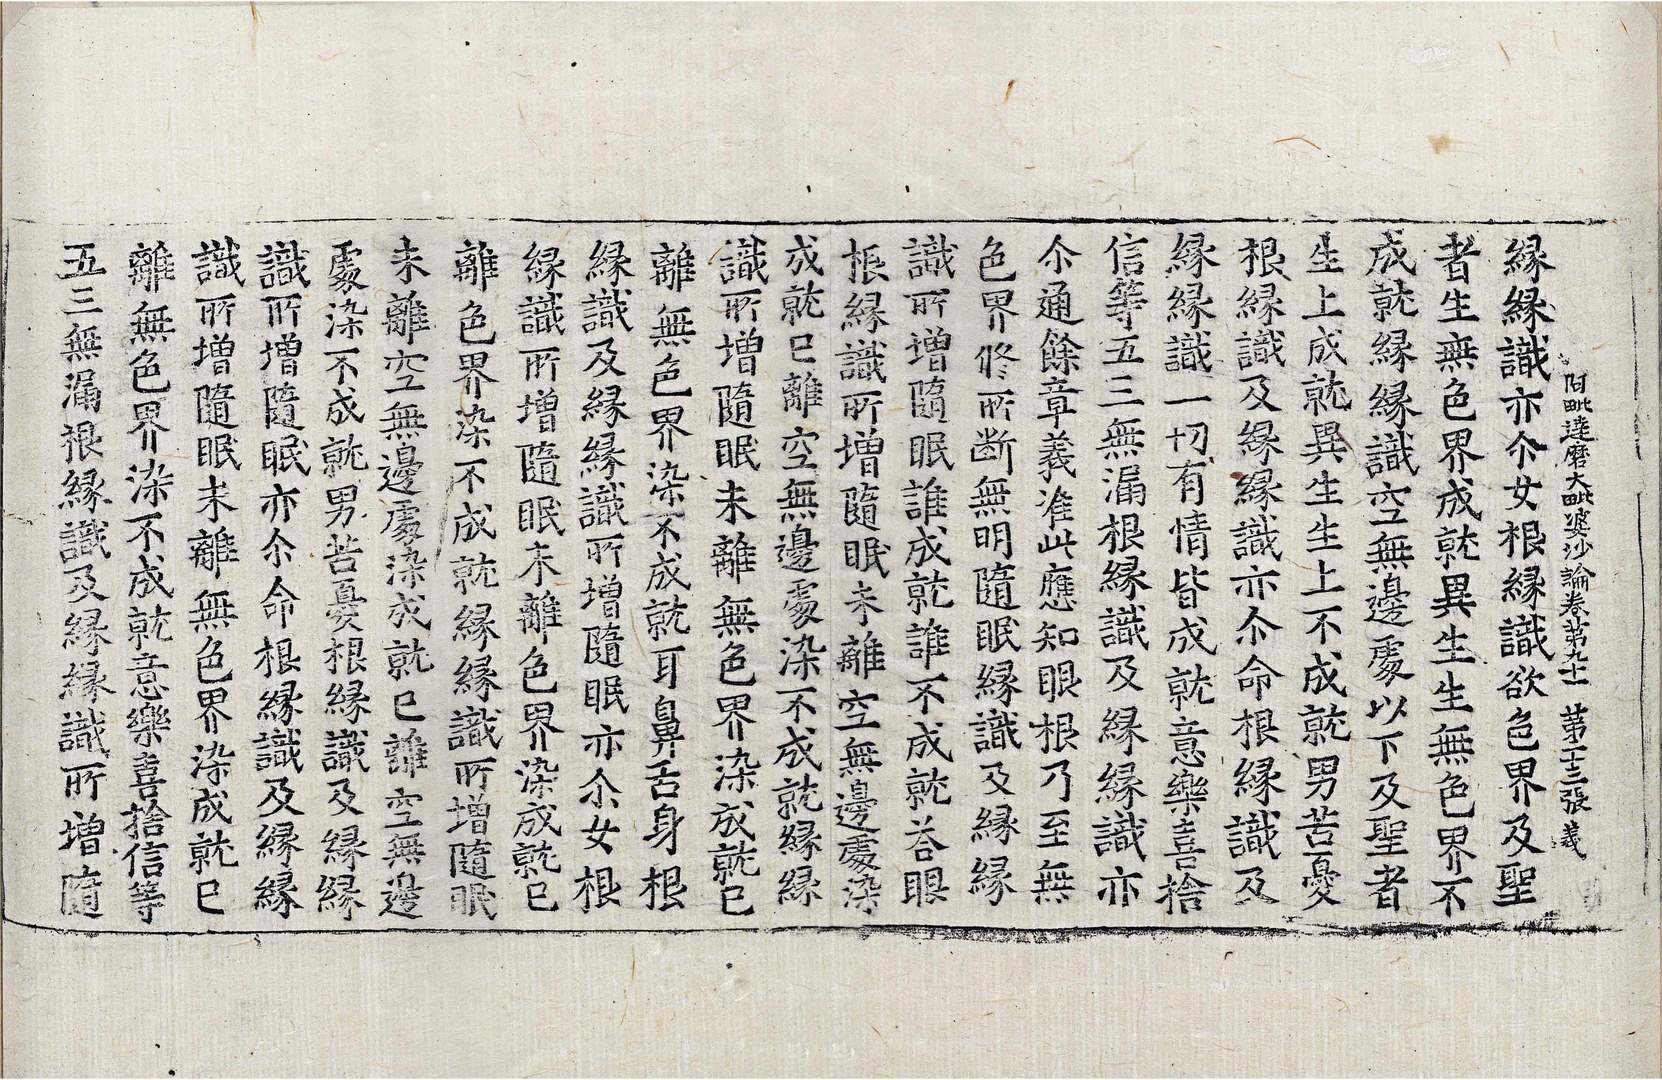 阿毗達磨大毗婆沙論卷第九十一 第十三張 義
縁縁識亦尒女根縁識欲色界及聖
者生無色界成就異生生無色界不
成就縁縁識空無邊處以下及聖者
生上成就異生生上不成就男苦憂
根縁識及縁縁識亦尒命根縁識及
縁縁識一切有情皆成就意樂喜捨
信等五三無漏根縁識及縁縁識亦
尒通餘章義准此應知眼根乃至無
色界修所断無明隨眠縁識及縁縁
識所增隨眠誰成就誰不成就荅眼
根縁識所增隨眠未離空無邊處染
成就已離空無邊處染不成就縁縁
識所增隨眠未離無色界染成就已
離無色界染不成就耳鼻舌身根
縁識及縁縁識所增隨眠亦尒女根
縁識所增隨眠未離色界染成就已
離色界染不成就縁縁識所增隨眠
未離空無邊處染成就已離空無邊
處染不成就男苦憂根縁識及縁縁
識所增隨眠亦尒命根縁識及縁縁
識所增隨眠未離無色界染成就已
離無色界染不成就意樂喜捨信等
五三無漏根縁識及縁縁識所增隨